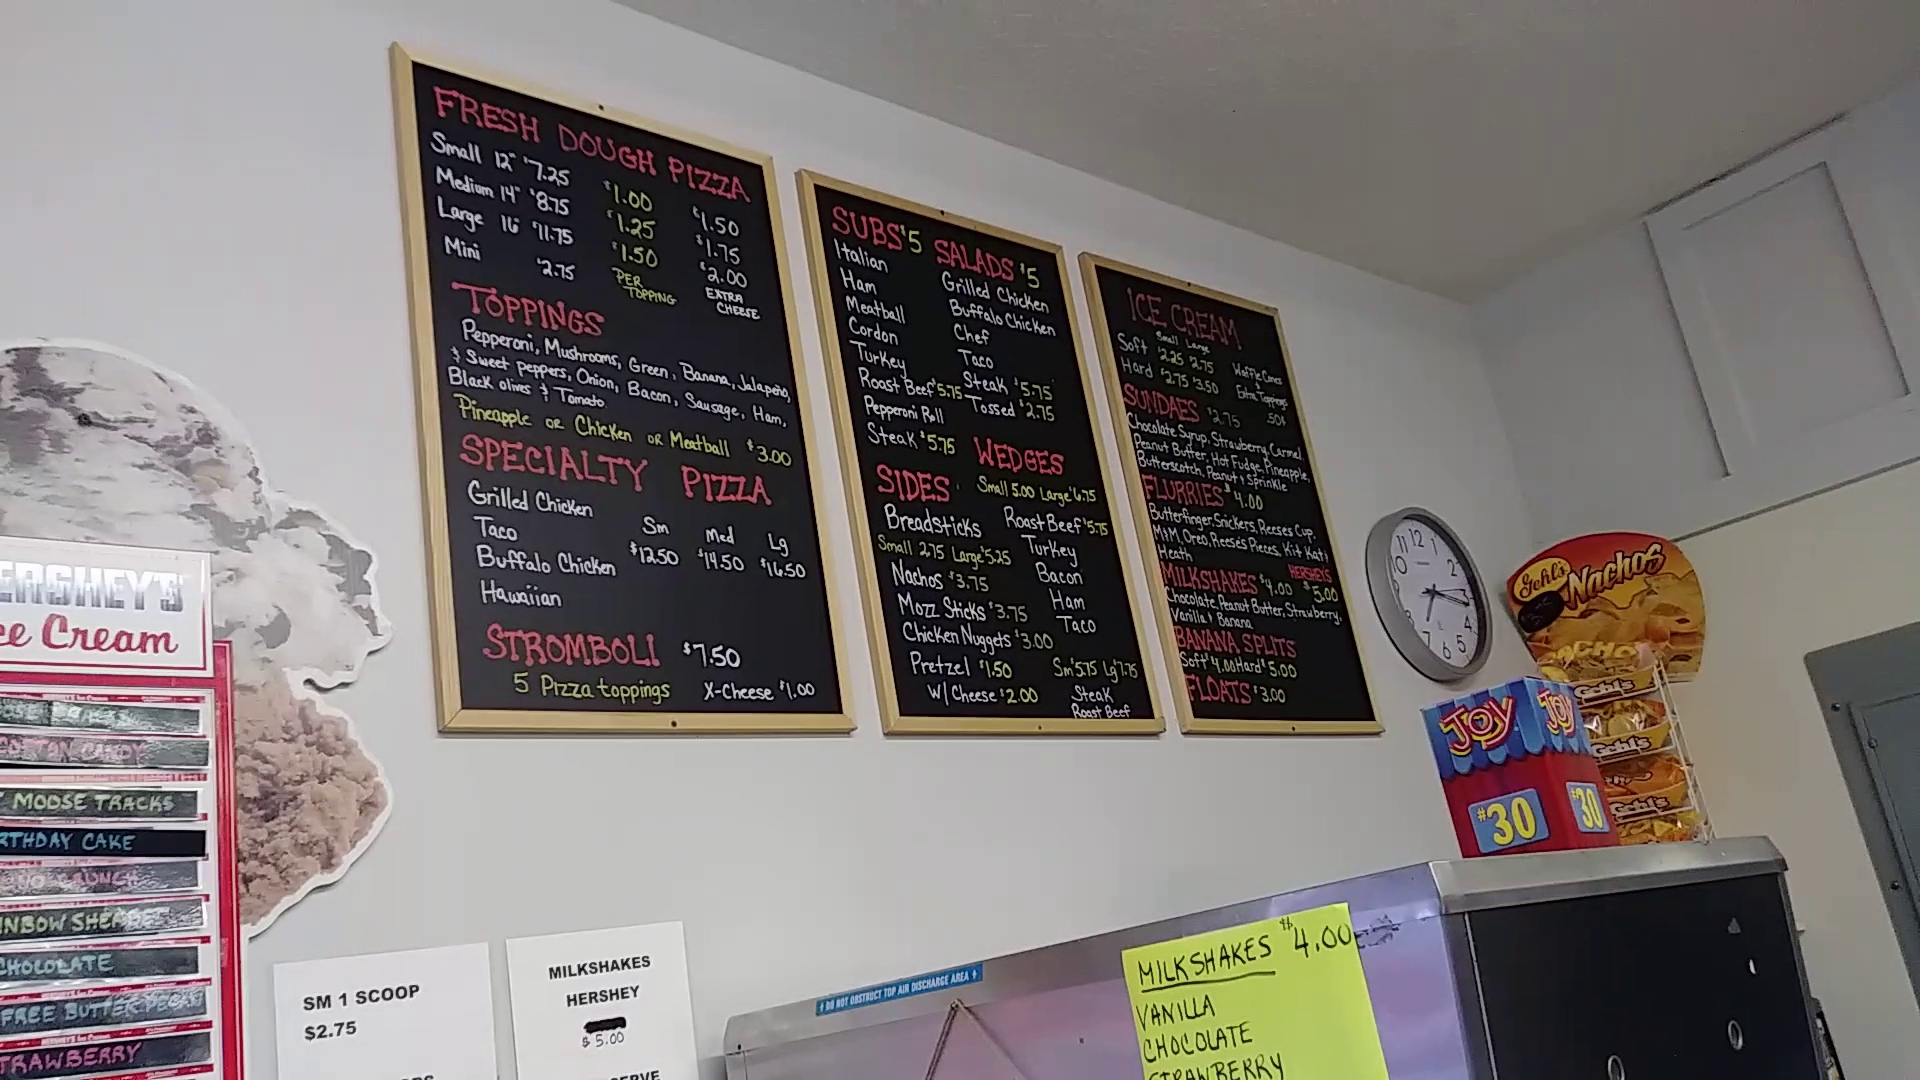 FRESH DOUGH PIZZA
Small 12" $7.25 $1.00 $1.50
Medium 14" $8.75 $1.25 $1.75
Large 16" $11.75 $1.50 $2.00
Mini $2.75 PER TOPPING EXTRA CHEESE
TOPPINGS
Pepperoni, Mushrooms, Green, Banana, Jalapeño,
& Sweet peppers, Onion, Bacon, Sausage, Ham,
Black olives & Tomato
Pineapple or Chicken or Meatball $3.00
SPECIALTY PIZZA
Grilled Chicken
Taco Sm Med Lg
Buffalo Chicken $12.50 $14.50 $16.50
Hawaiian
STROMBOLI $7.50
5 Pizza toppings X-Cheese $1.00
SUBS $5
Italian
Ham
Meatball
Cordon
Turkey
Roast Beef $5.75
Pepperoni Roll
Steak $5.75
SALADS $5
Grilled Chicken
Buffalo Chicken
Chef
Taco
Steak $5.75
Tossed $2.75
SIDES
Breadsticks
Small 2.75 Large $5.25
Nachos $3.75
Mozz Sticks $3.75
Chicken Nuggets $3.00
Pretzel $1.50
W/ Cheese $2.00
WEDGES
Small 5.00 Large $6.75
Roast Beef $5.75
Turkey
Bacon
Ham
Taco
Sm $5.75 Lg $7.75
Steak
Roast Beef
ICE CREAM
Small Large
Soft $2.25 $2.75
Hard $2.75 $3.50
Waffle Cones
&
Extra Toppings
.50¢
SUNDAES $2.75
Chocolate Syrup, Strawberry, Carmel,
Peanut Butter, Hot Fudge, Pineapple,
Butterscotch, Peanut & Sprinkle
FLURRIES $4.00
Butterfinger, Snickers, Reeses Cup,
M&M, Oreo, Reese's Pieces, Kit Kat &
Heath
MILKSHAKES $4.00 HERSHEYS $5.00
Chocolate, Peanut Butter, Strawberry,
Vanilla & Banana
BANANA SPLITS
Soft $4.00 Hard $5.00
FLOATS $3.00
11 12 1 2 3 4 5 6 7 8
Gehl's Nachos
NACHO
Gehl's
Gehl's
Gehl's
Gehl's
JOY JOY
#30 #30
ERSHEY'S
ce Cream
COTTAN CANDY
MOOSE TRACKS
RTHDAY CAKE
CRUNCH
NBOW SHERBET
CHOCOLATE
FREE BUTTER PECAN
TRAWBERRY
SM 1 SCOOP
$2.75
MILKSHAKES
HERSHEY
$5.00
ERVE
DO NOT OBSTRUCT TOP AIR DISCHARGE AREA
MILKSHAKES $4.00
VANILLA
CHOCOLATE
STRAWBERRY